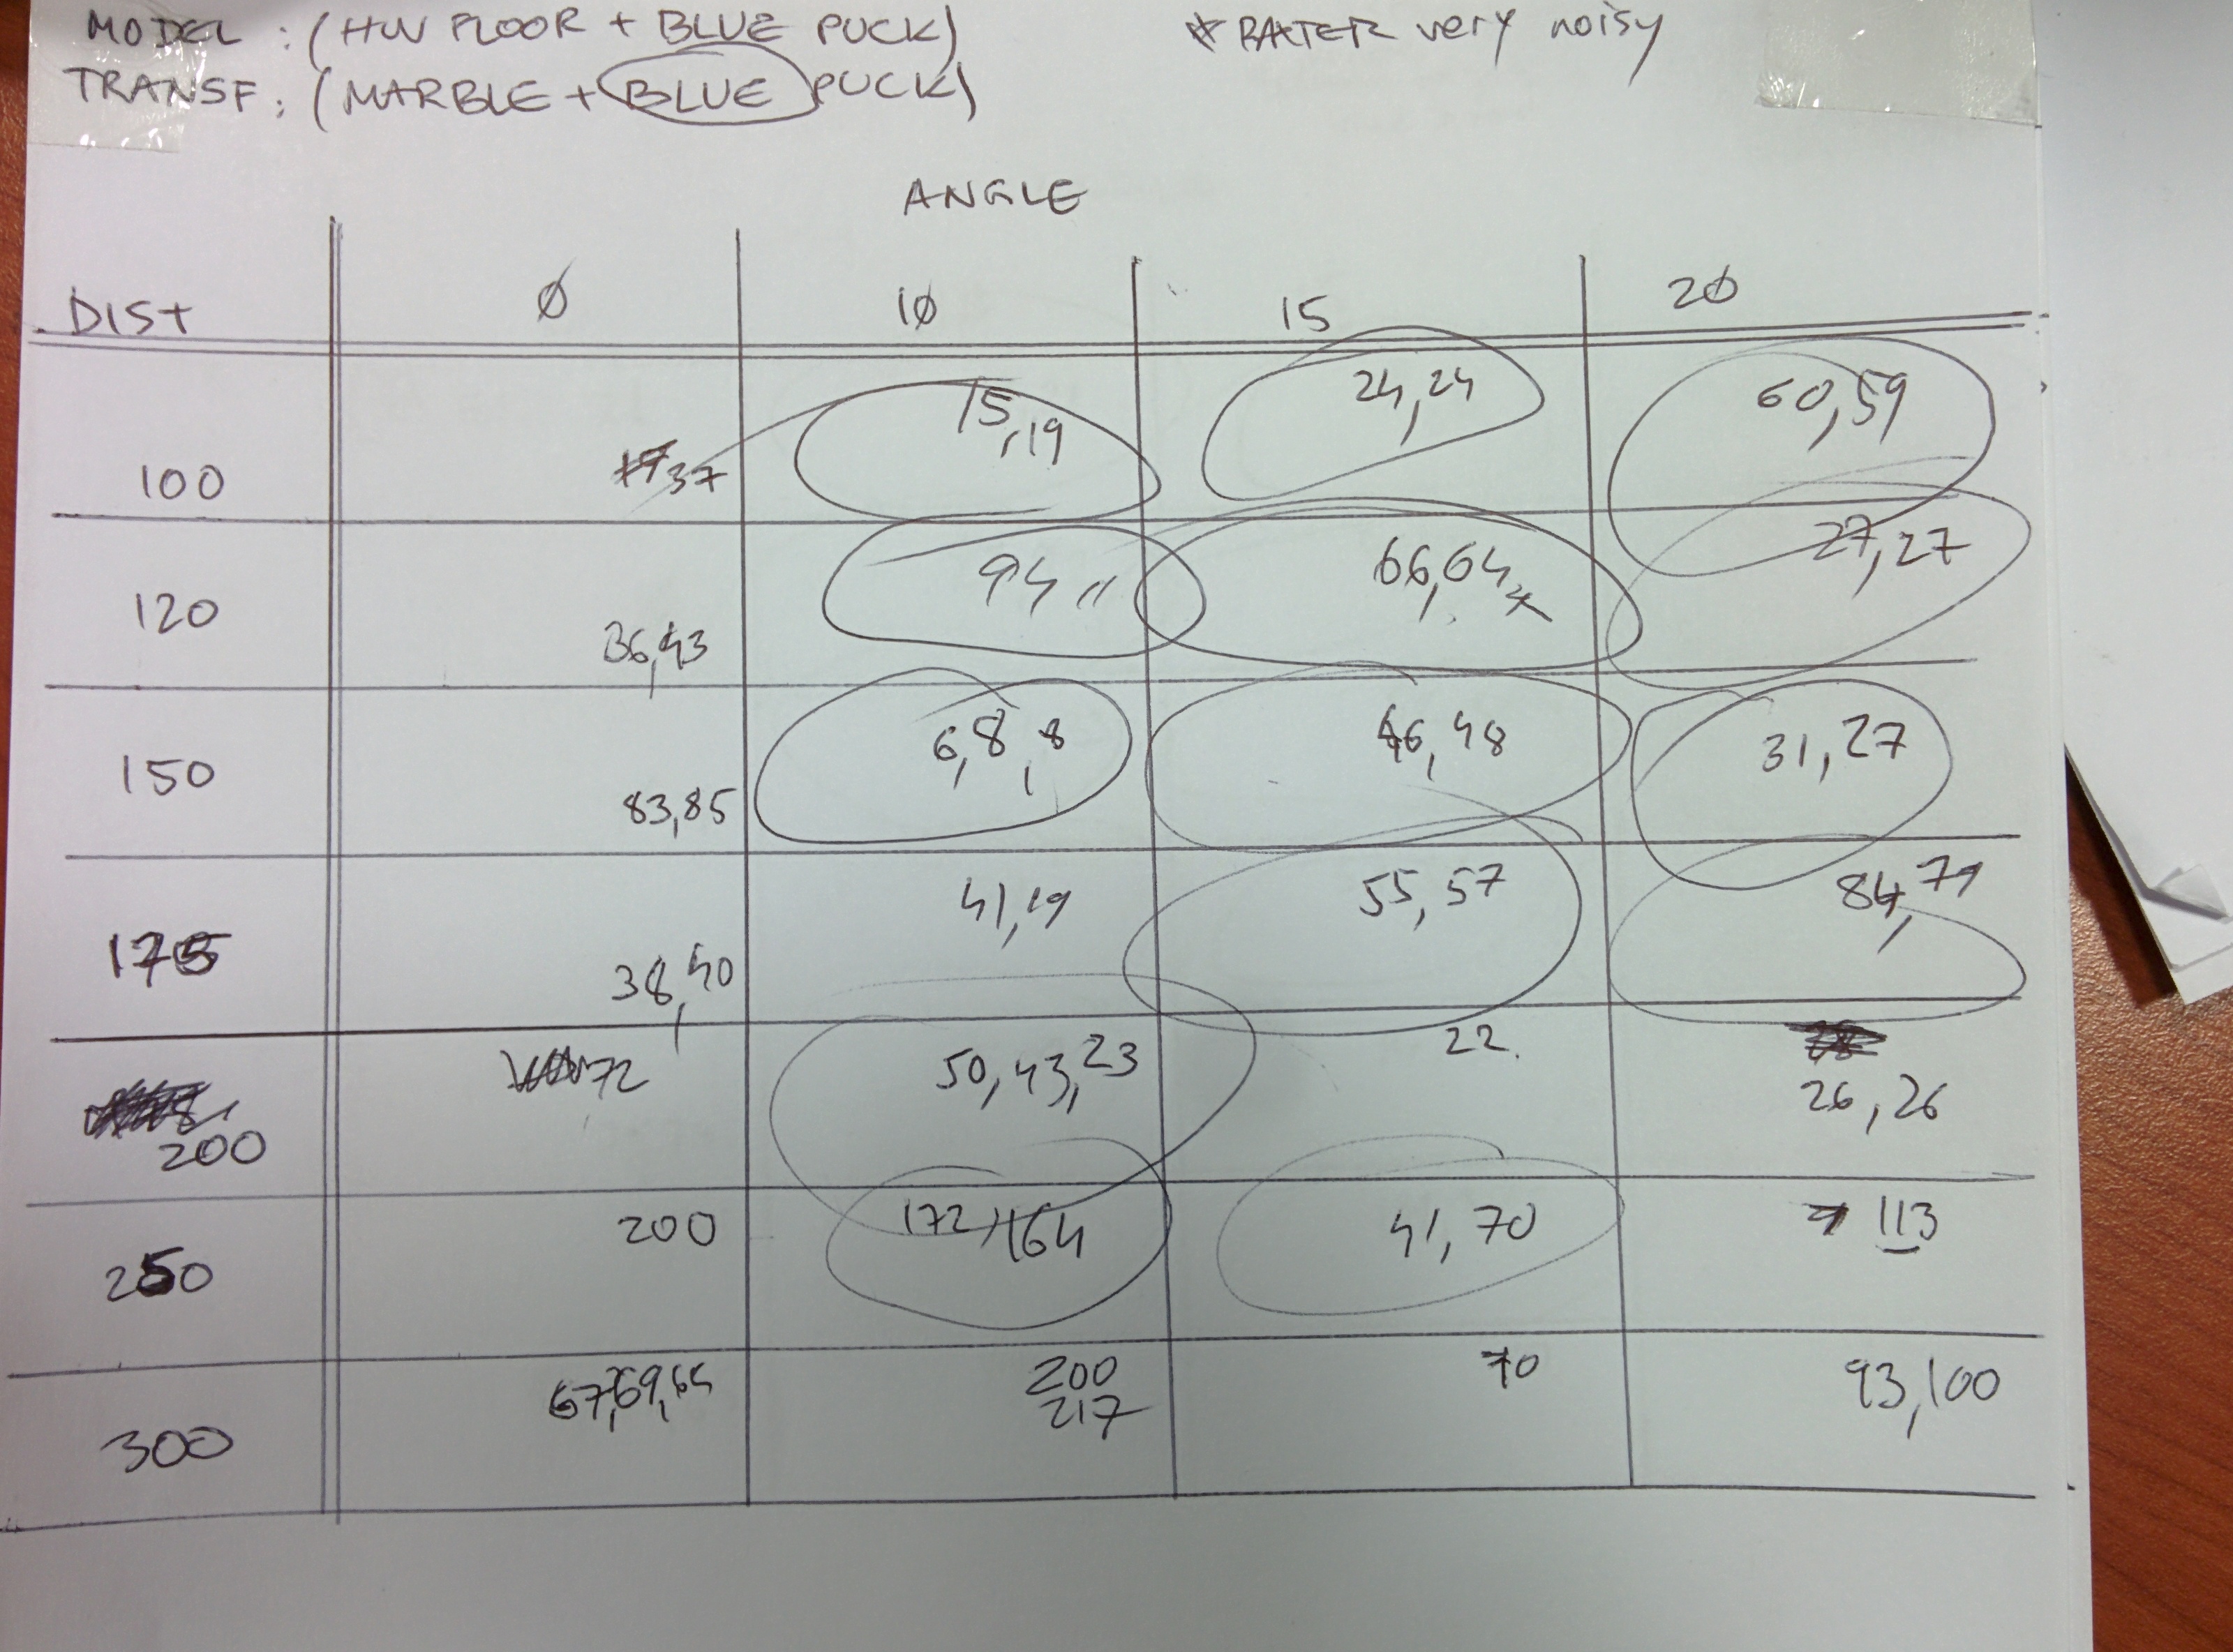 MODEL : (HW FLOOR + BLUE PUCK) * BAXTER very noisy
TRANSF : (MARBLE + BLUE PUCK)
ANGLE
DIST 0 10 15 20
100 37 15,19 24,24 60,59
120 36,43 94 " 66,64 * 27,27
150 83,85 6,8,8 46,48 31,27
175 38,40 41,19 55,57 84,79
200 72 50,43,23 22. 26,26
250 200 172,164 41,70 113
300 67,69,64 200 217 70 93,100